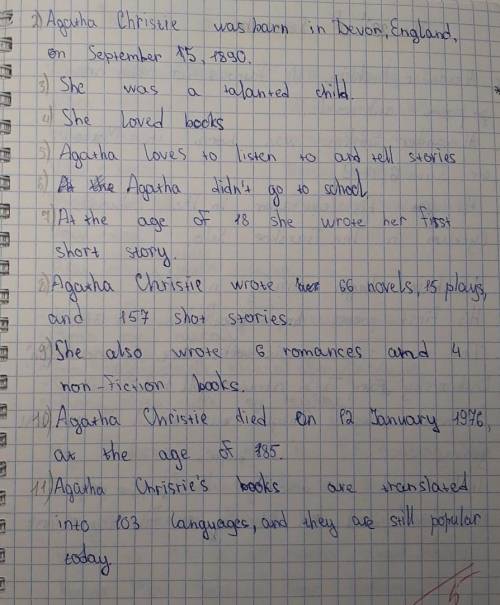 2) Agatha Christie was barn in Devon, England,
on September 15, 1890.
3) She was a talanted child.
4) She loved books
5) Agatha loves to listen to and tell stories
6) Agatha didn't go to school
7) At the age of 18 she wrote her first
short story.
8) Agatha Christie wrote 66 novels, 15 plays,
and 157 shot stories.
9) She also wrote 6 romances and 4
non-fiction books.
10) Agatha Christie died on 12 January 1976,
at the age of 185.
11) Agatha Chrisrie's books are translated
into 103 languages, and they are still popular
today.